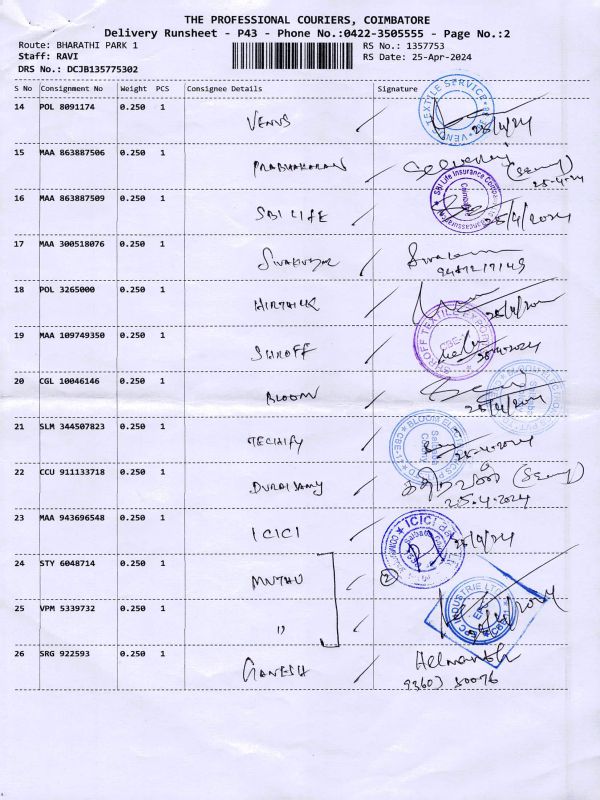 THE PROFESSIONAL COURIERS, COIMBATORE
Delivery Runsheet - P43 - Phone No.:0422-3505555 - Page No.:2
Route: BHARATHI PARK 1 RS No.: 1357753
Staff: RAVI RS Date: 25-Apr-2024
DRS No.: DCJB135775302
S No Consignment No Weight PCS Consignee Details Signature
14 POL 8091174 0.250 1 VENUS 25/4/24
VENUS TEXTILE SERVICE
15 MAA 863887506 0.250 1 PRABHAKARAN
25-4-24
16 MAA 863887509 0.250 1 SBI LIFE 25/4/2024
SBI Life Insurance
17 MAA 300518076 0.250 1 SIVAKUMAR
18 POL 3265000 0.250 1 HIRTHICK
19 MAA 109749350 0.250 1 SHROFF 25-4-2024
SHROFF TEXTILE
20 CGL 10046146 0.250 1 BLOOM 25/4/2024
21 SLM 344507823 0.250 1 TECHIFY 25-4-2024
BLOOM
22 CCU 911133718 0.250 1 DURAISAMY
25.4.2024
23 MAA 943696548 0.250 1 ICICI 25/4/24
ICICI
24 STY 6048714 0.250 1 MUTHU 2
25 VPM 5339732 0.250 1 "
INDUSTRIE
26 SRG 922593 0.250 1 GANESH Hemanth
93603 50076